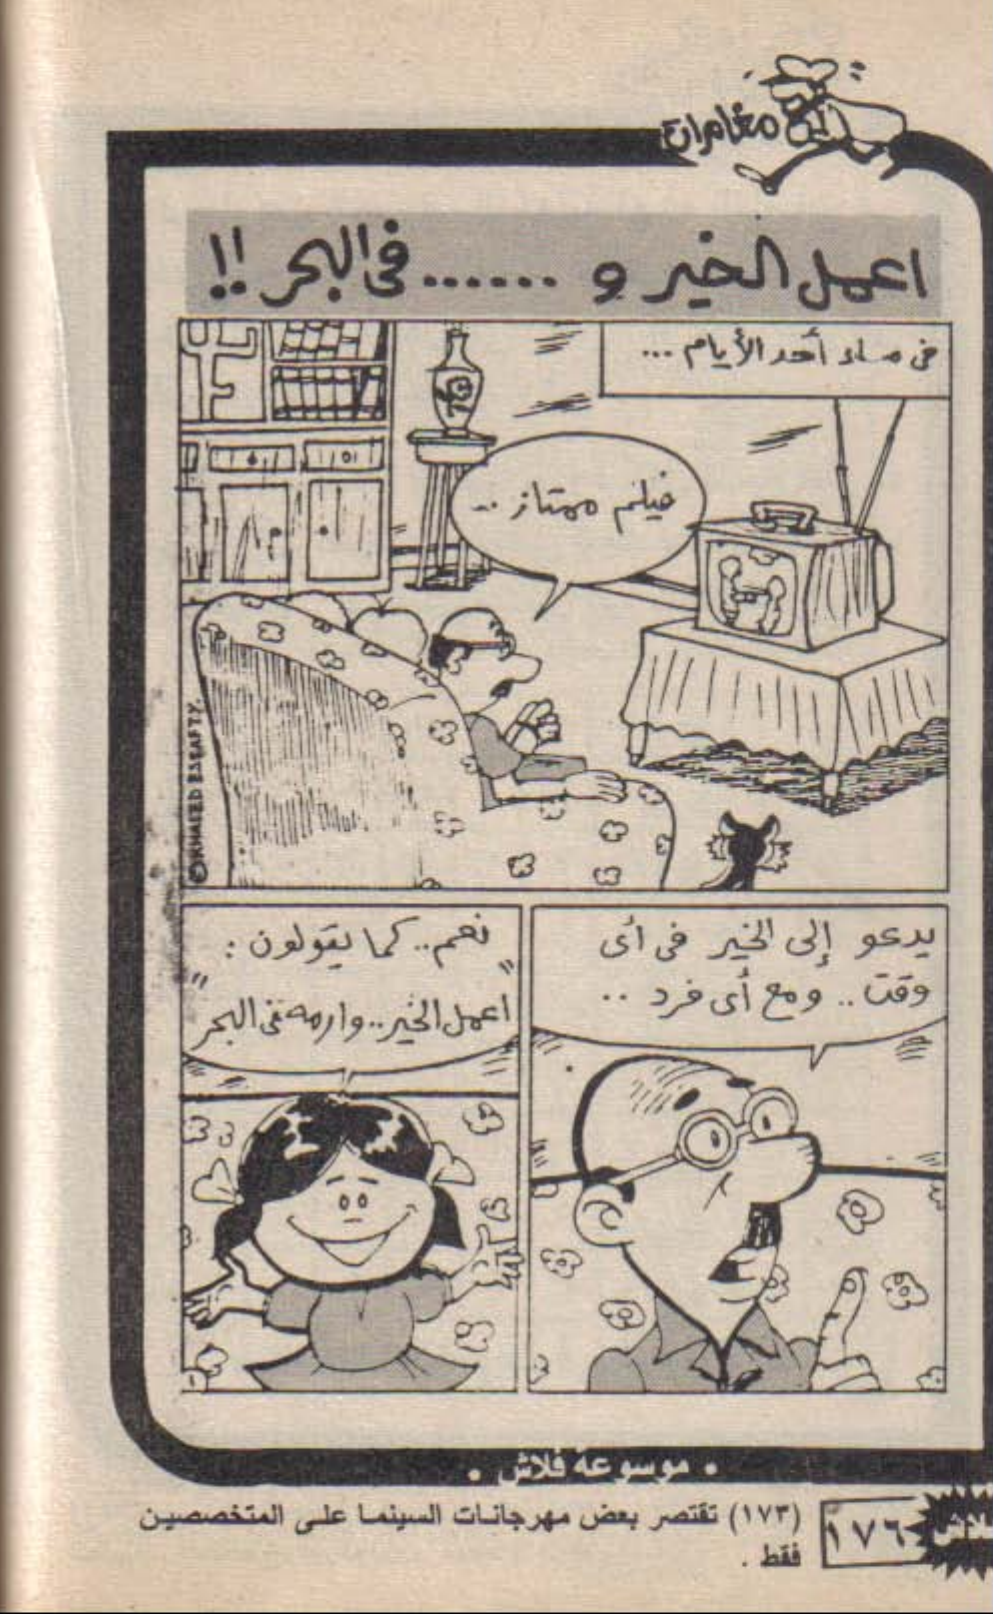 مغامرات
اعمل الخير و ...... فى البحر !!
فى مساء أحد الأيام ...
فيلم ممتاز ..
© KHALED ELSAFTY
يدعو إلى الخير فى أى
وقت .. ومع أى فرد ..
نعم .. كما يقولون :
"اعمل الخير .. وارمه فى البحر"
• موسوعة فلاش •
(١٧٣) تقتصر بعض مهرجانات السينما على المتخصصين
فقط .
١٧٦